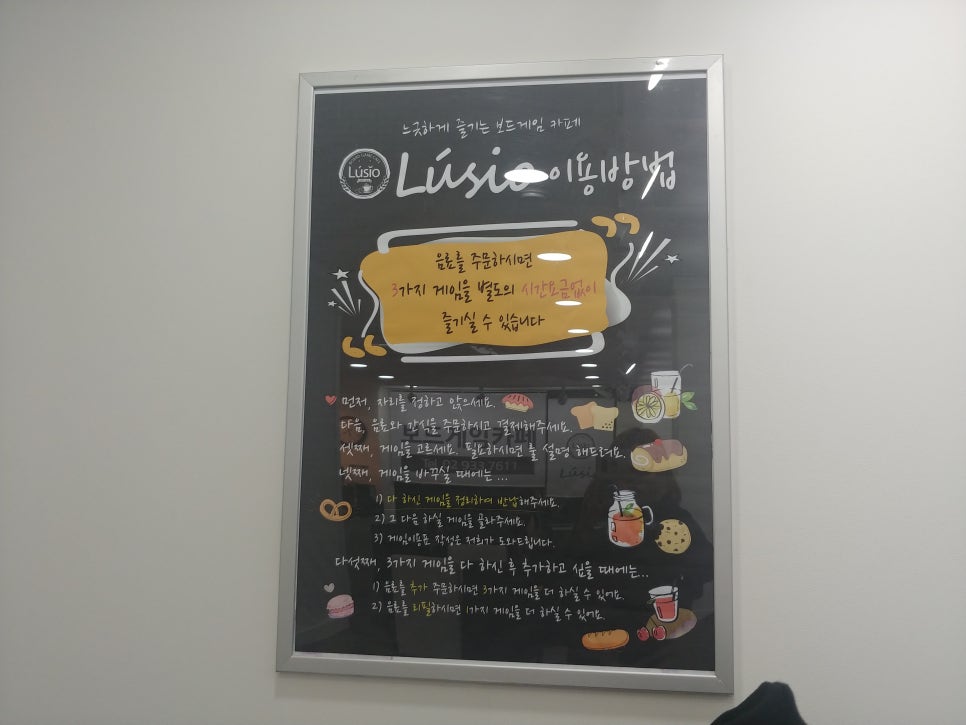 느긋하게 즐기는 보드게임 카페
Lúsio
Lúsio 이용방법
음료를 주문하시면
3가지 게임을 별도의 시간요금없이
즐기실 수 있습니다
먼저, 자리를 정하고 앉으세요.
다음, 음료와 간식을 주문하시고 결제해주세요.
셋째, 게임을 고르세요. 필요하시면 룰 설명 해드려요.
넷째, 게임을 바꾸실 때에는...
1) 다 하신 게임을 정리하여 반납해주세요.
2) 그 다음 하실 게임을 골라주세요.
3) 게임이용표 작성은 저희가 도와드립니다.
다섯째, 3가지 게임을 다 하신 후 추가하고 싶을 때에는...
1) 음료를 추가 주문하시면 3가지 게임을 더 하실 수 있어요.
2) 음료를 리필하시면 1가지 게임을 더 하실 수 있어요.
보드게임카페
933 7611
Lúsio